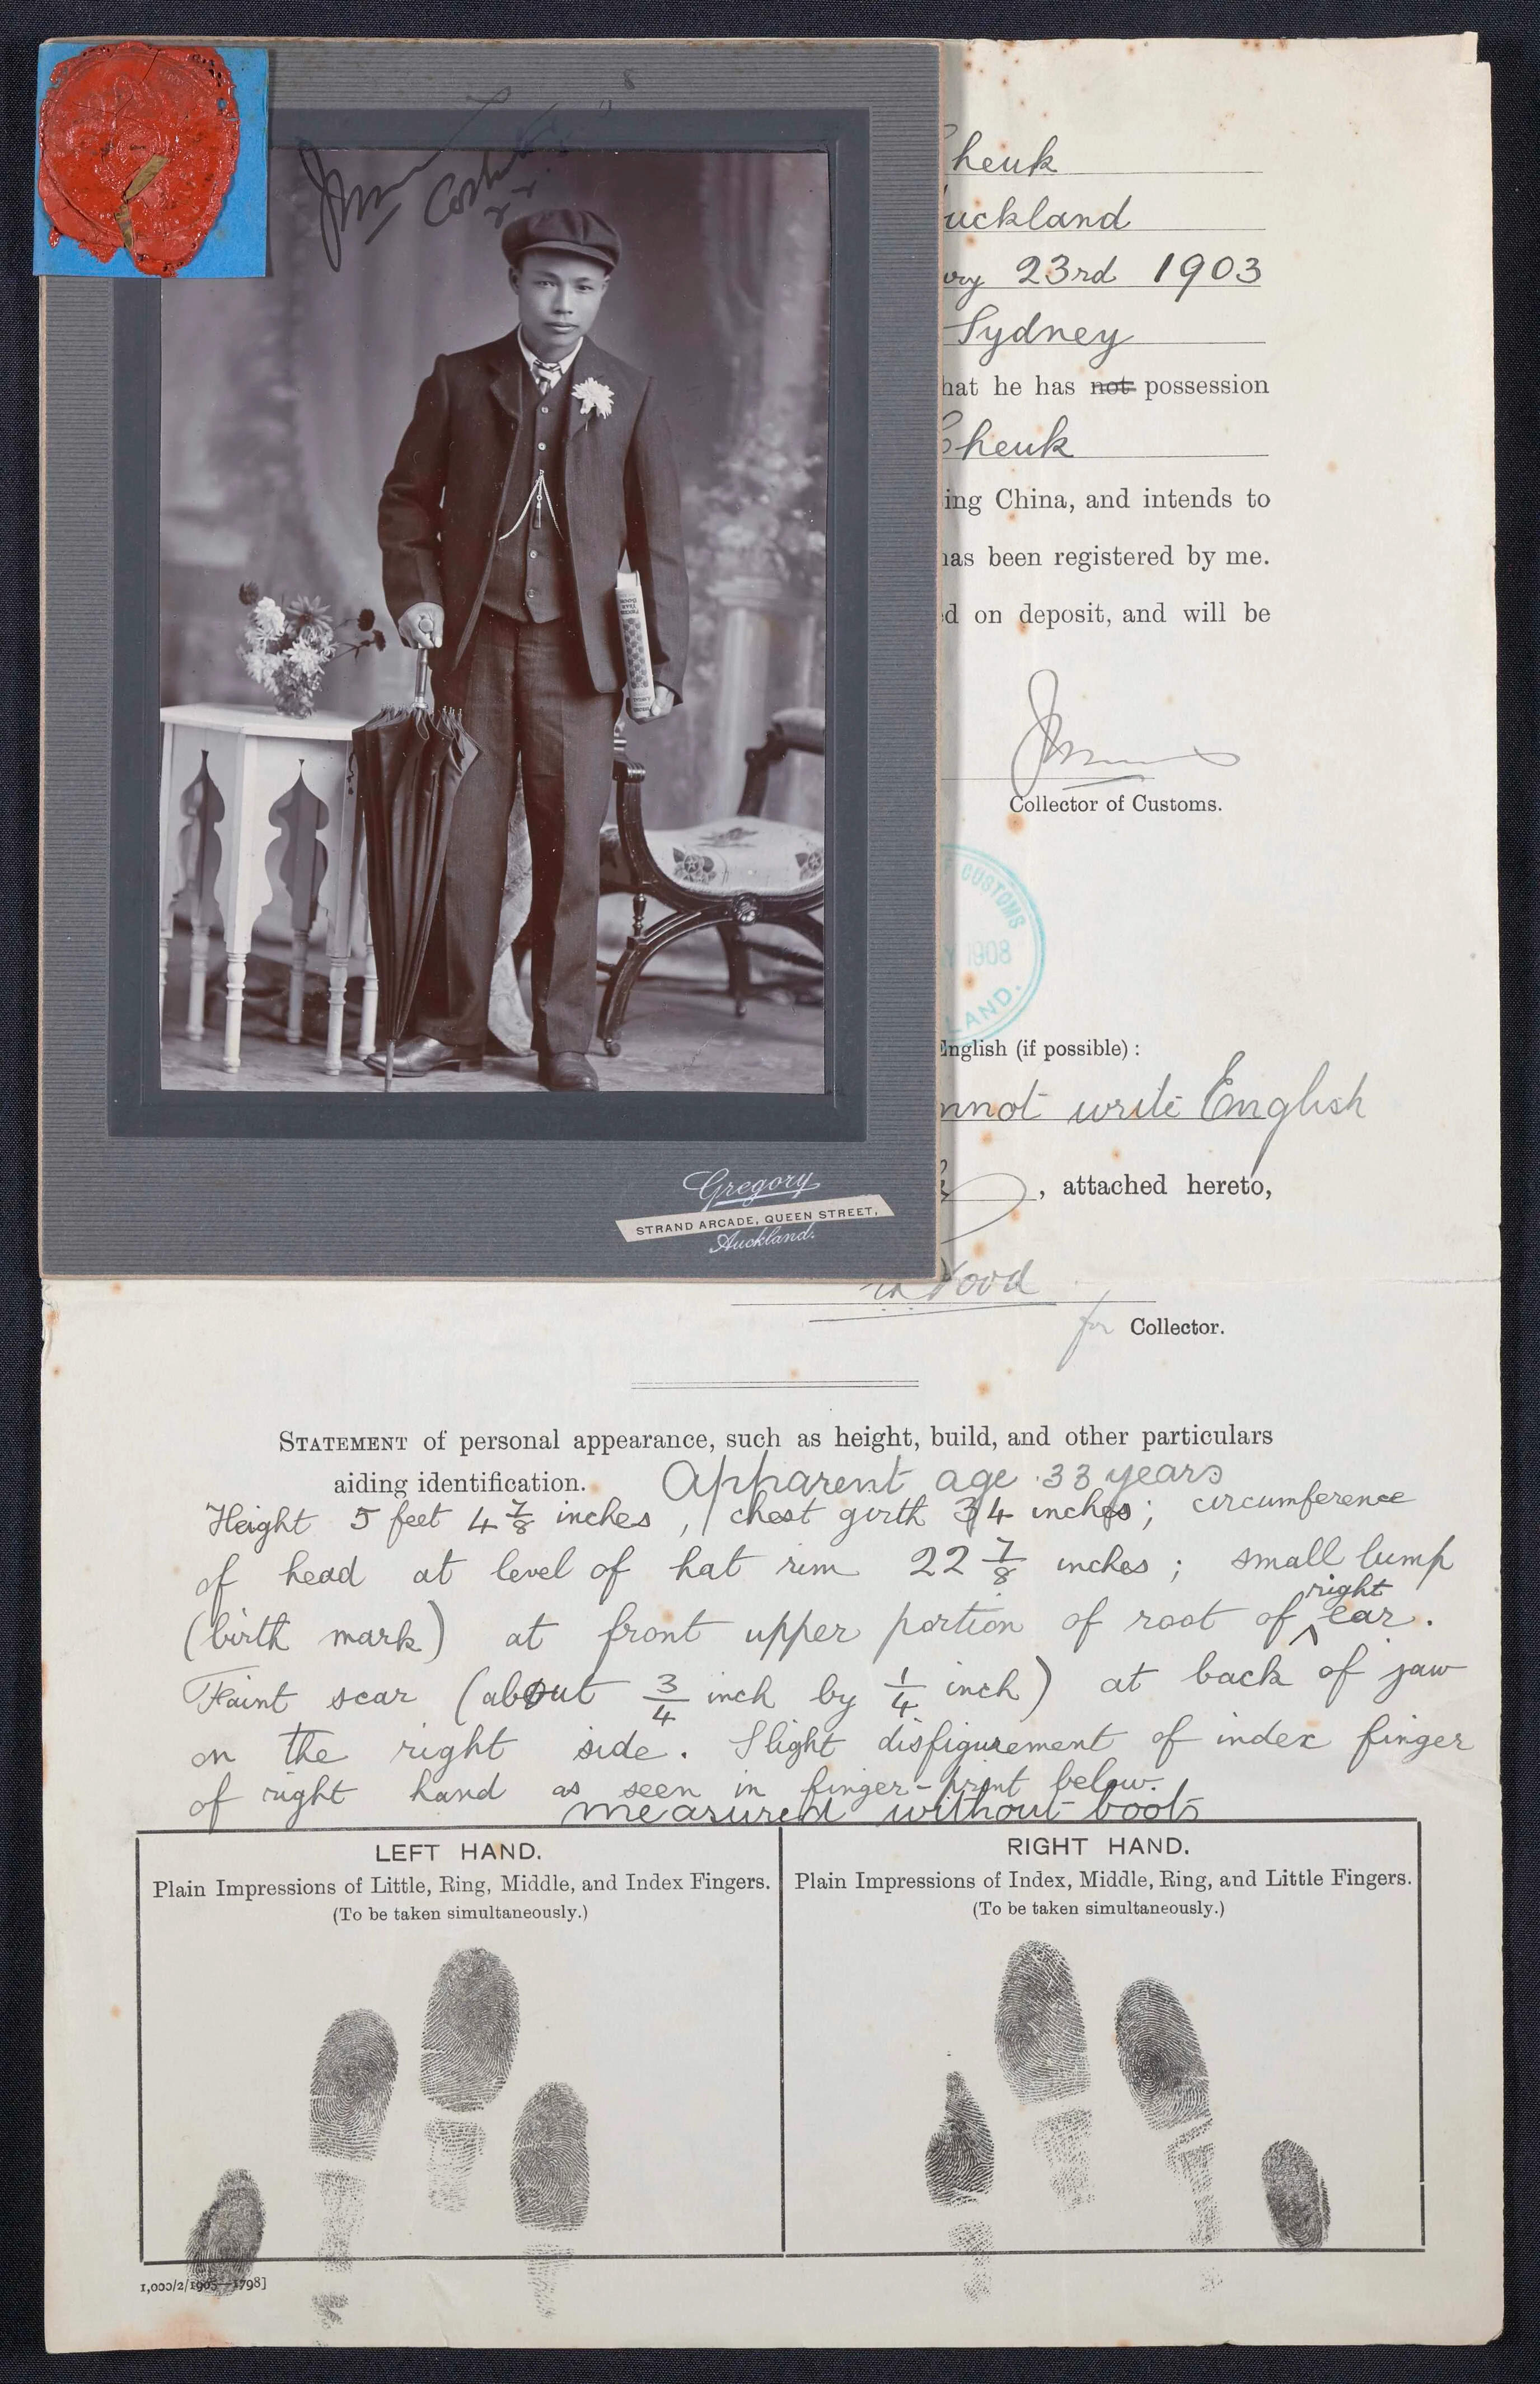 heuk
uckland
23rd 1903
Sydney
hat he has not possession
heuk
ing China, and intends to
has been registered by me.
d on deposit, and will be
Collector of Customs.
CUSTOMS
1908
LAND.
English (if possible) :
nnot write English
, attached hereto,
Gregory
STRAND ARCADE, QUEEN STREET,
Auckland.
for Collector.
STATEMENT of personal appearance, such as height, build, and other particulars
aiding identification. Apparent age 33 years
Height 5 feet 4 7/8 inches, chest girth 34 inches; circumference
of head at level of hat rim 22 7/8 inches; small lump
(birth mark) at front upper portion of root of right ear.
Faint scar (about 3/4 inch by 1/4 inch) at back of jaw
on the right side. Slight disfigurement of index finger
of right hand as seen in finger-print below.
measured without boots
LEFT HAND.
Plain Impressions of Little, Ring, Middle, and Index Fingers.
(To be taken simultaneously.)
RIGHT HAND.
Plain Impressions of Index, Middle, Ring, and Little Fingers.
(To be taken simultaneously.)